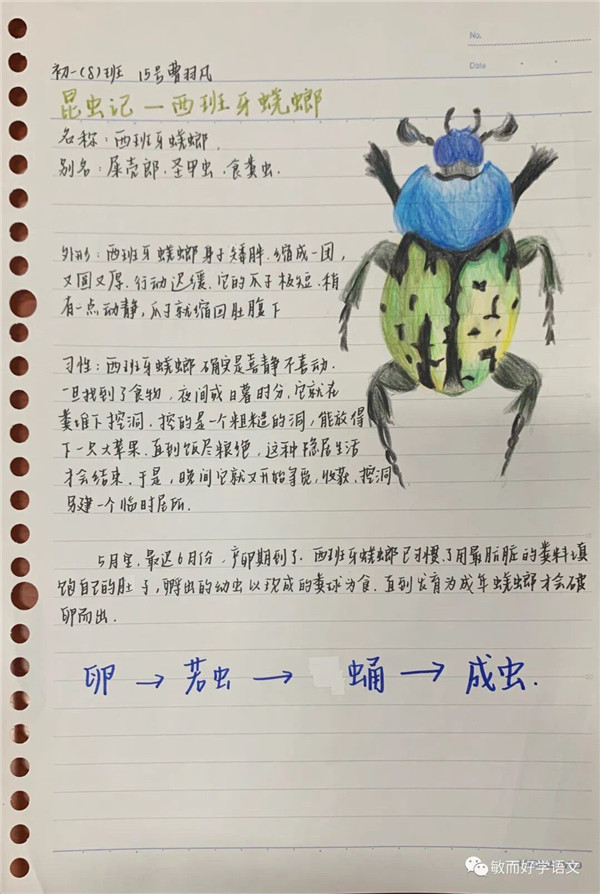 No.
Date
初一(8)班 15号曹羽凡
昆虫记—西班牙蜣螂
名称:西班牙蜣螂.
别名:屎壳郎.圣甲虫.食粪虫.
外形:西班牙蜣螂身子矮胖.缩成一团,
又圆又厚.行动迟缓.它的爪子极短.稍
有一点动静,爪子就缩回肚腹下
习性:西班牙蜣螂确实是喜静不喜动.
一旦找到了食物,夜间或日暮时分,它就在
粪堆下挖洞.挖的是一个粗糙的洞,能放得
下一只大苹果.直到饭尽粮绝,这种隐居生活
才会结束.于是,晚间它就又开始寻觅,收获,挖洞
另建一个临时居所.
5月里,最迟6月份,产卵期到了.西班牙蜣螂已习惯了用最肮脏的粪料填
饱自己的肚子,孵出的幼虫以现成的粪球为食.直到发育为成年蜣螂才会破
卵而出.
卵→若虫→蛹→成虫.
敏而好学语文